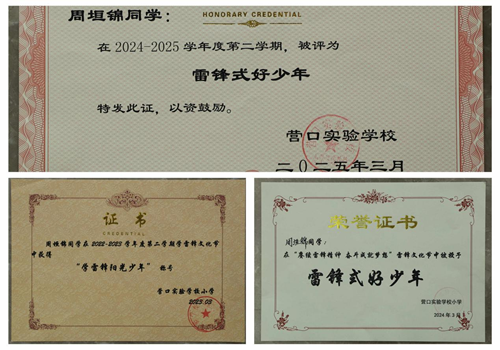 周垣锦同学：
HONORARY CREDENTIAL
在 2024-2025 学年度第二学期，被评为
雷锋式好少年
特发此证，以资鼓励。
营口实验学校
二〇二五年三月
证书
CREDENTIAL
周垣锦同学在 2022-2023 学年度第二学期学雷锋文化节
中获得
“学雷锋阳光少年” 称号
营口实验学校小学
2023.03
荣誉证书
周垣锦同学：
在“赓续雷锋精神 奋斗成就梦想”雷锋文化节中被授予
雷锋式好少年
营口实验学校小学
2024 年 3 月